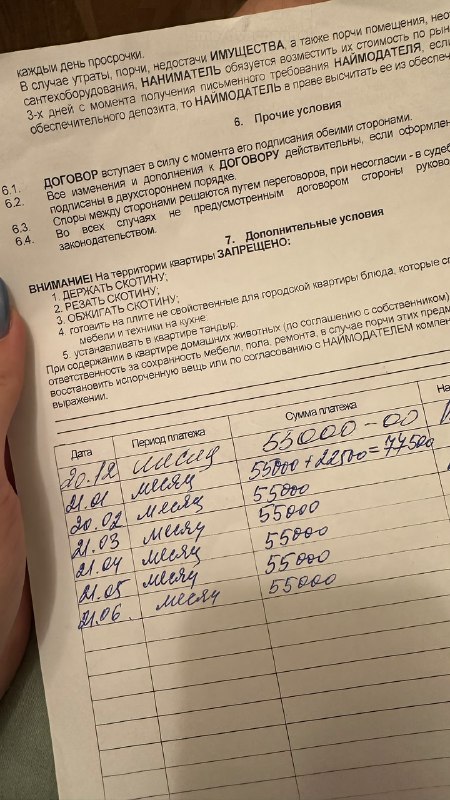 каждый день просрочки.
В случае утраты, порчи, недостачи ИМУЩЕСТВА, а также порчи помещения,
сантехоборудования, НАНИМАТЕЛЬ обязуется возместить их стоимость по
3-х дней с момента получения письменного требования НАЙМОДАТЕЛЯ, если
обеспечительного депозита, то НАЙМОДАТЕЛЬ в праве высчитать ее из
6. Прочие условия
6.1. ДОГОВОР вступает в силу с момента его подписания обеими сторонами.
6.2. Все изменения и дополнения к ДОГОВОРУ действительны, если
подписаны в двухстороннем порядке.
6.3. Споры между сторонами решаются путем переговоров, при несогласии - в
6.4. Во всех случаях не предусмотренным договором стороны
законодательством.
7. Дополнительные условия
ВНИМАНИЕ! На территории квартиры ЗАПРЕЩЕНО:
1. ДЕРЖАТЬ СКОТИНУ;
2. РЕЗАТЬ СКОТИНУ;
3. ОБЖИГАТЬ СКОТИНУ;
4. готовить на плите не свойственные для городской квартиры блюда, которые
мебели и техники на кухне
5. устанавливать в квартире тандыр.
При содержании в квартире домашних животных (по соглашению с собственником)
ответственность за сохранность мебели, пола, ремонта, в случае порчи этих
восстановить испорченную вещь или по согласованию с НАЙМОДАТЕЛЕМ
выражении.
Дата Период платежа Сумма платежа
20.12 месяц 55000-00
21.01 месяц 55000 + 22500 = 77500
20.02 месяц 55000
21.03 месяц 55000
21.04 месяц 55000
21.05 месяц 55000
21.06. месяц 55000